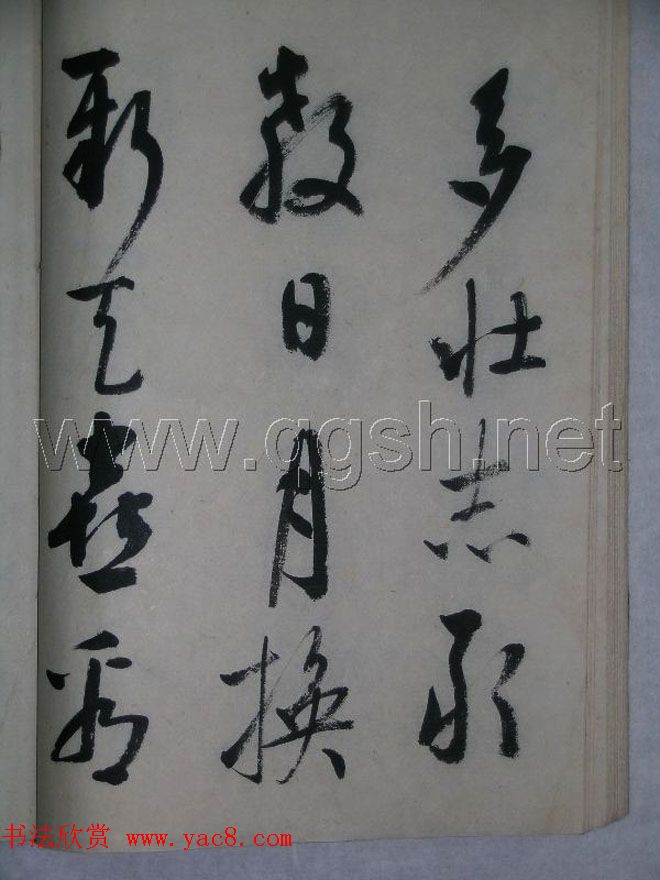 多壮志敢
教日月换
新天喜看
www.ggsh.net
书法欣赏 www.yac8.com